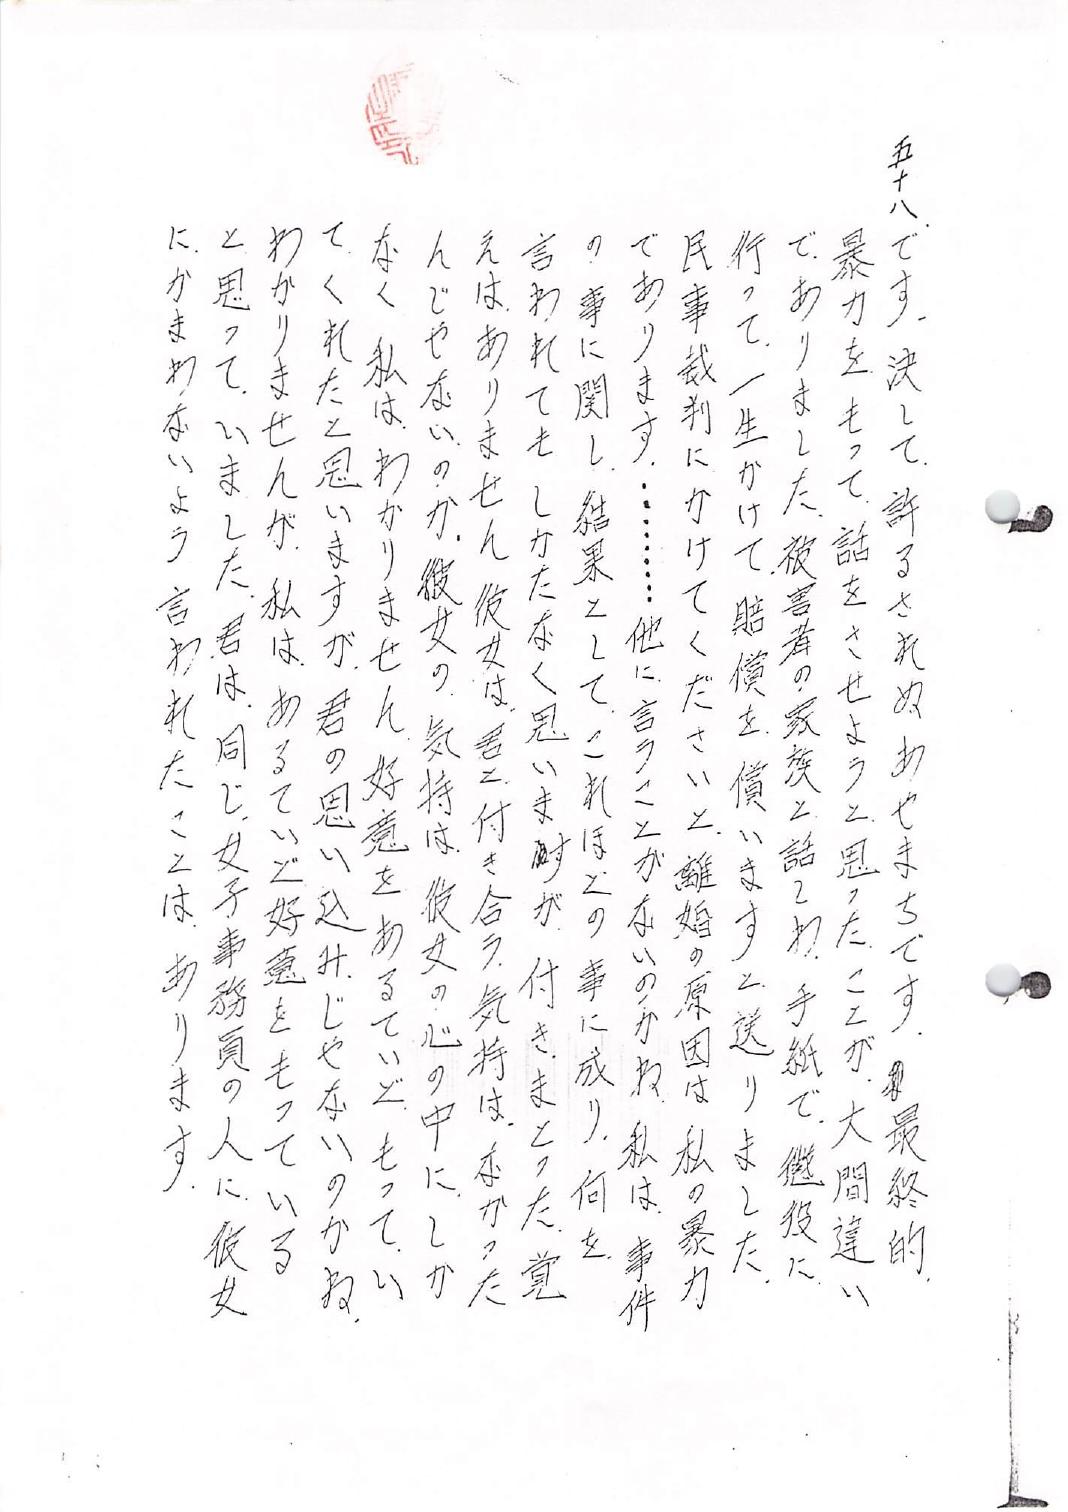 五十八
です. 決して. 許るされぬあやまちです. 最終的.
暴力をもって. 話をさせようと思ったことが. 大間違い
でありました. 被害者の家族と話しわ. 手紙で. 懲役に.
行って. 一生かけて. 賠償を. 償いますと送りました.
民事裁判にかけてくださいと. 離婚の原因は私の暴力
であります. ……… 他に. 言うことがないのかね. 私は. 事件
の事に関し. 結果として. これほどの事に成り. 何を.
言われてもしかたなく思いますが. 付きまとった. 覚
えはありません 彼女は. 君と付き合う. 気持は. なかった
んじやないのか. 彼女の. 気持は. 彼女の心の中に. しか
なく 私は. わかりません. 好意をあるていど. もってい
てくれたと思いますが. 君の思い込み. じやないのかね.
わかりませんが. 私は. あるていど好意をもっている
と思って. いました. 君は. 同じ. 女子事務員の人に. 彼女
に. かまわないよう 言われたことは. あります.